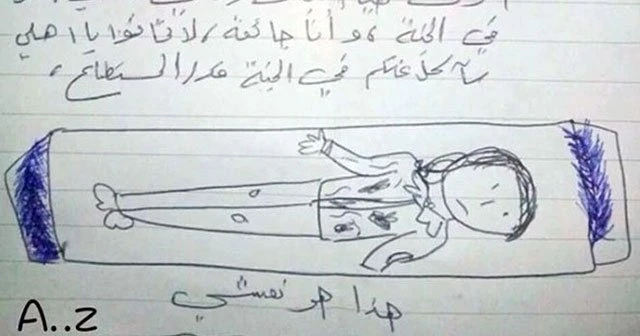 في الجنة ، و أنا جائعة ، لا يا اهلي
سآكل عنكم في الجنة قدر المستطاع ،
هذا هو نعشي
A..z